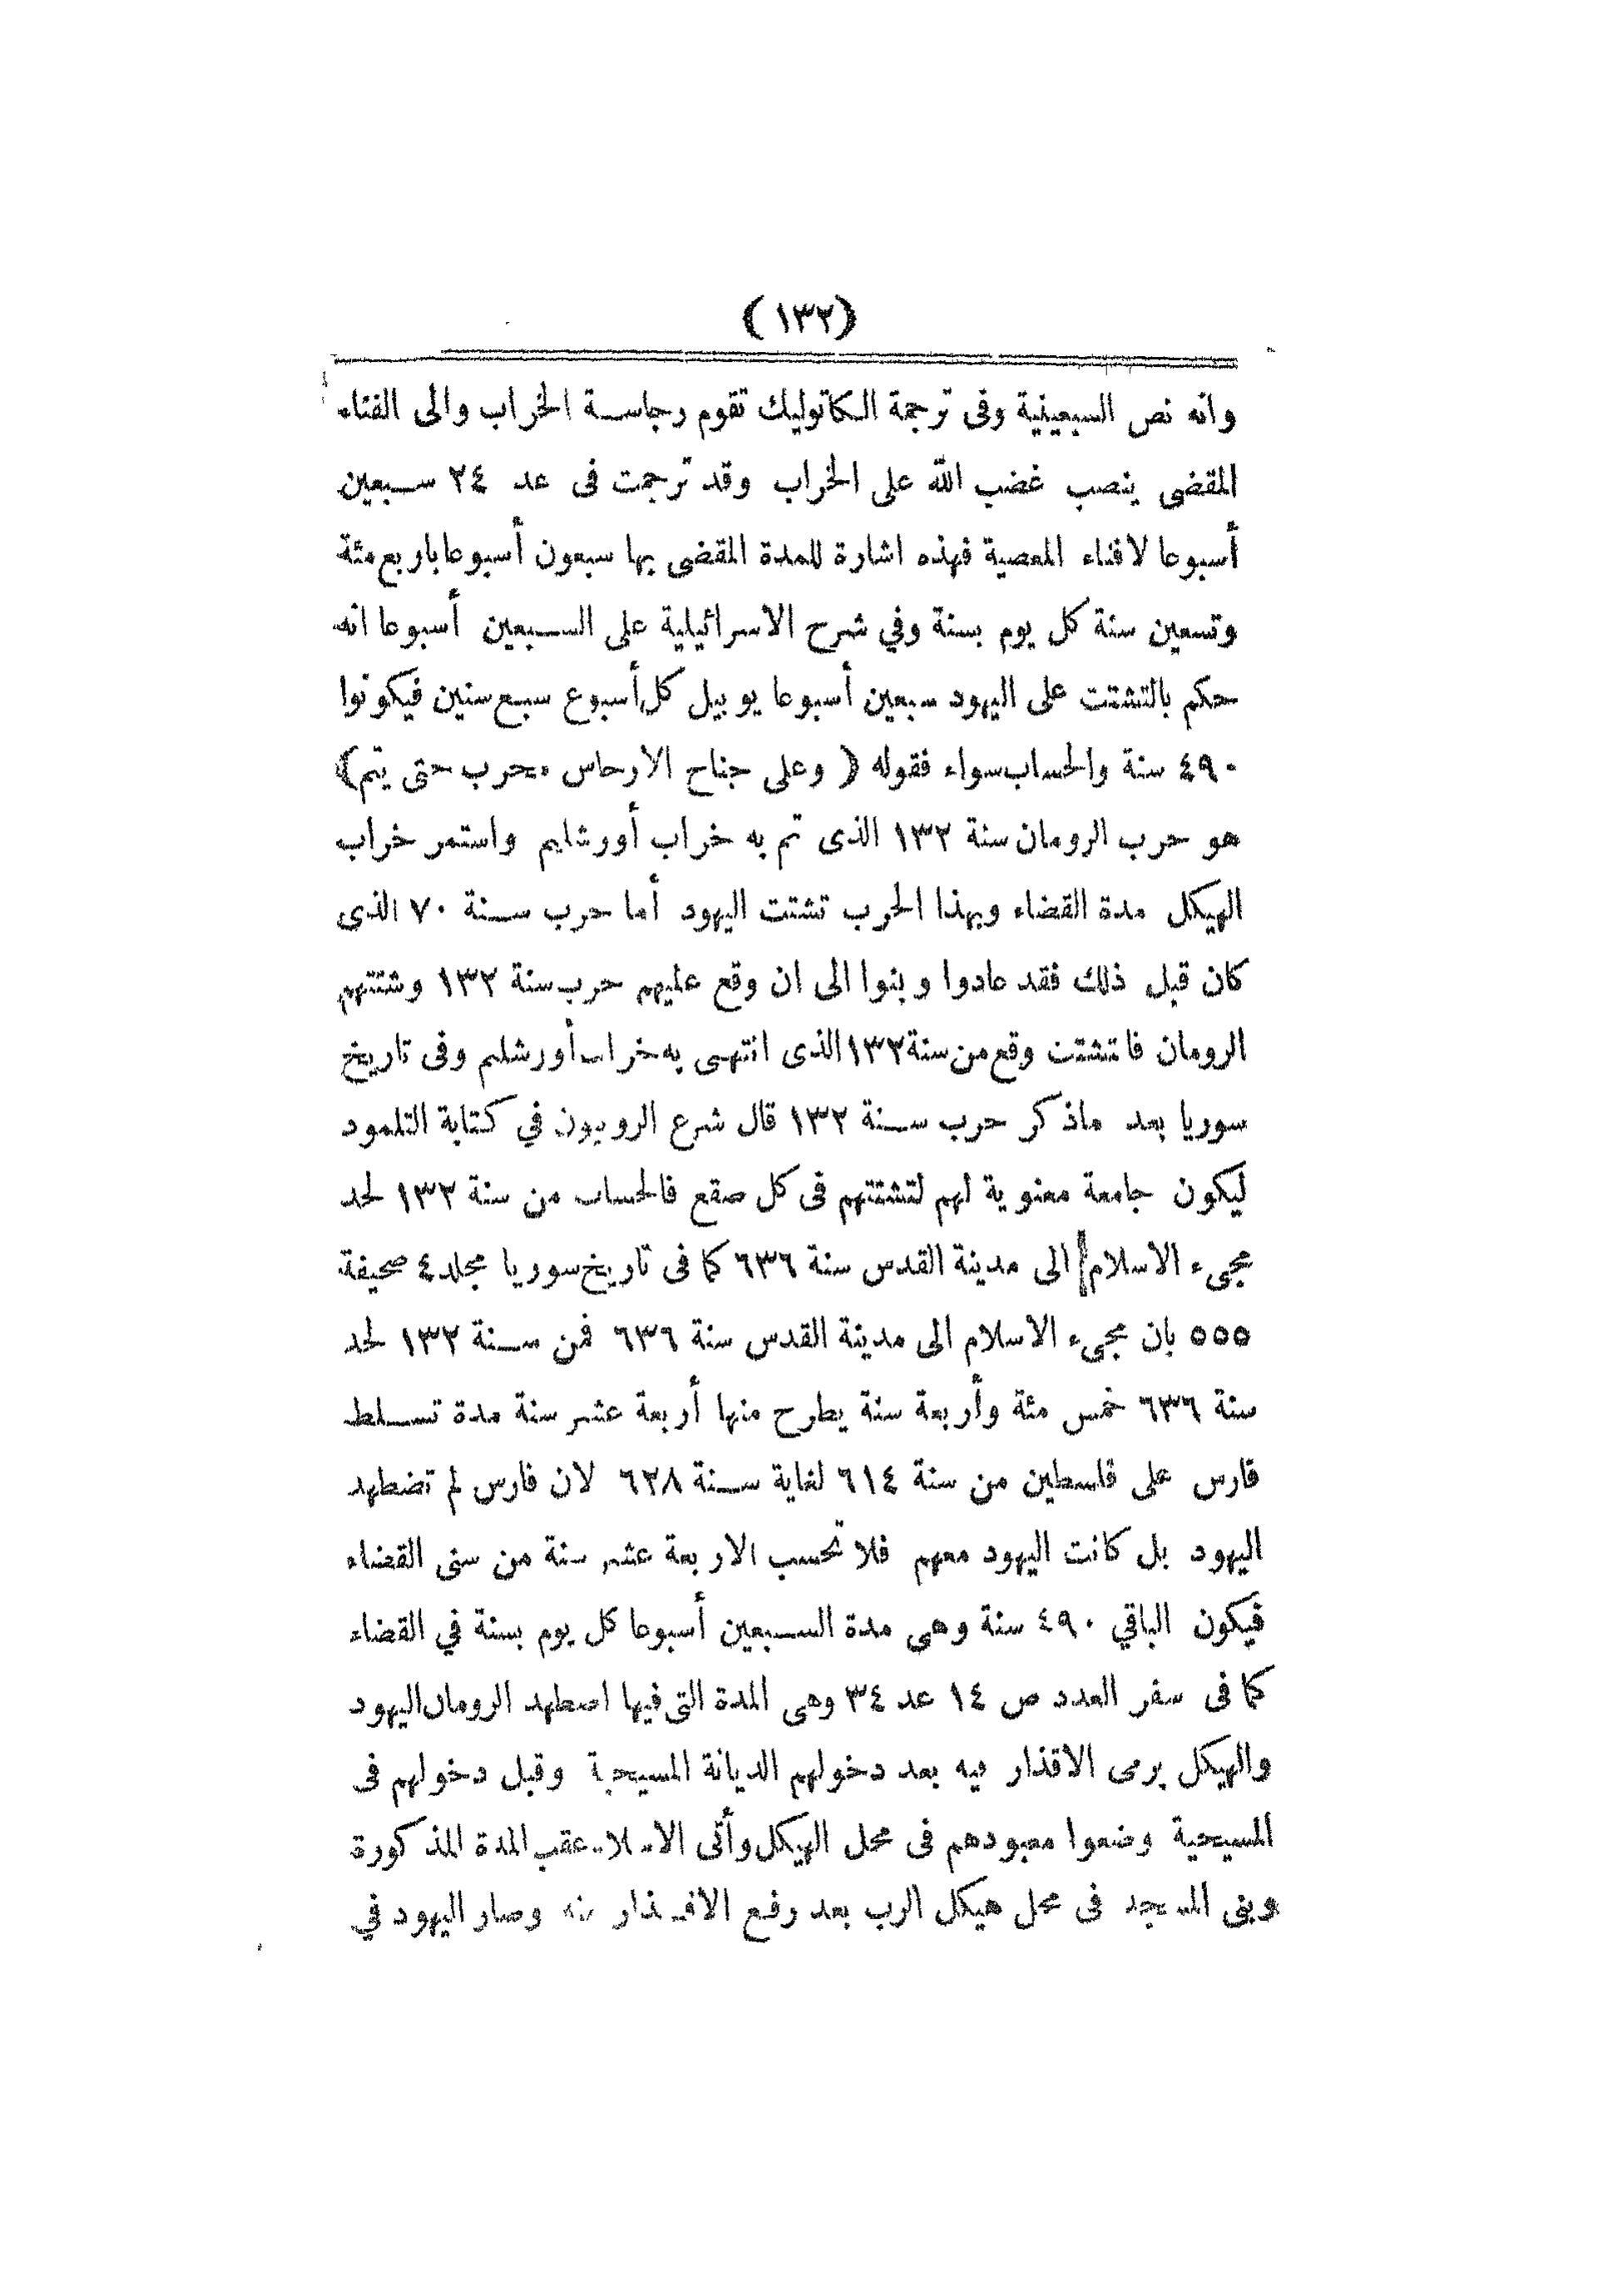 (١٣٢)
وانه نص السبعينية وفى ترجمة الكاتوليك تقوم رجاسة الخراب والى الفناء
المقضى ينصب غضب الله على الخراب وقد ترجمت فى عد ٢٤ سبعين
أسبوعا لافناء المعصية فهذه اشارة للمدة المقضى بها سبعون أسبوعا باربع مئة
وتسعين سنة كل يوم بسنة وفي شرح الاسرائيلية على السبعين أسبوعا انه
حكم بالتشتت على اليهود سبعين أسبوعا يوبيل كل أسبوع سبع سنين فيكونوا
٤٩٠ سنة والحساب سواء فقوله ( وعلى جناح الارجاس مخرب حتى يتم )
هو حرب الرومان سنة ١٣٢ الذى تم به خراب أورشايم واستمر خراب
الهيكل مدة القضاء وبهذا الحرب تشتت اليهود أما حرب سنة ٧٠ الذى
كان قبل ذلك فقد عادوا وبنوا الى ان وقع عليهم حرب سنة ١٣٢ وشتتهم
الرومان فاتشتت وقع من سنة ١٣٢ الذى انتهى به خراب أورشليم وفى تاريخ
سوريا بعد ماذكر حرب سنة ١٣٢ قال شرع الروبيون في كتابة التلمود
ليكون جامعة معنوية لهم لتشتتهم فى كل صقع فالحساب من سنة ١٣٢ لحد
مجىء الاسلام الى مدينة القدس سنة ٦٣٦ كما فى تاريخ سوريا مجلد ٤ صحيفة
٥٥٥ بان مجىء الاسلام الى مدينة القدس سنة ٦٣٦ فمن سنة ١٣٢ لحد
سنة ٦٣٦ خمس مئة وأربعة سنة يطرح منها أربعة عشر سنة مدة تسلط
فارس على فلسطين من سنة ٦١٤ لغاية سنة ٦٢٨ لان فارس لم تضطهد
اليهود بل كانت اليهود معهم فلا تحسب الاربعة عشر سنة من سنى القضاء
فيكون الباقي ٤٩٠ سنة وهى مدة السبعين أسبوعا كل يوم بسنة في القضاء
كما فى سفر العدد ص ١٤ عد ٣٤ وهى المدة التى فيها اضطهد الرومان اليهود
والهيكل يرمى الاقذار فيه بعد دخولهم الديانة المسيحية وقبل دخولهم فى
المسيحية وضعوا معبودهم فى محل الهيكل وأتى الاسلام عقب المدة المذكورة
وبنى المسجد فى محل هيكل الرب بعد رفع الاقذار منه وصار اليهود في